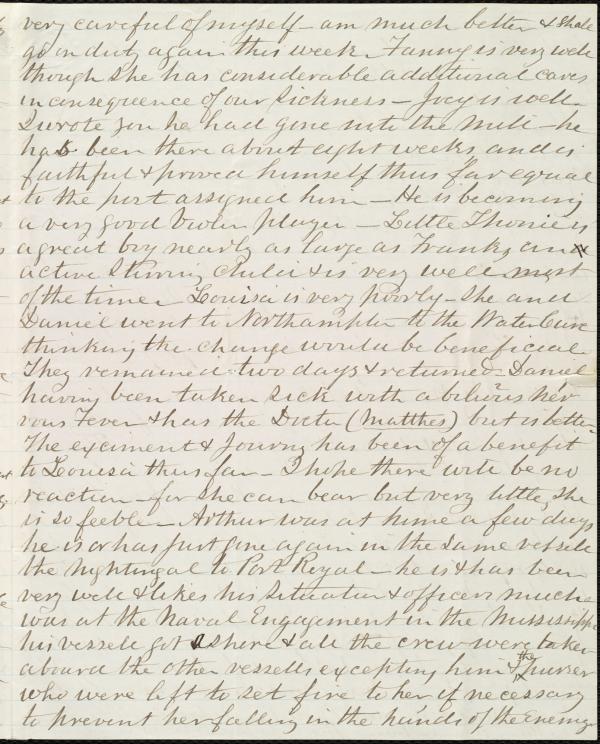 very careful of myself - am much better & shall
go on duty again this week. Fanny is very well
though she has considerable additional cares
in consequence of our sickness - Joey is well.
I wrote you he had gone into the mill - he
has been there about eight weeks, and is
faithful & proved himself thus far equal
to the post assigned him - He is becoming
a very good Violin player - Little Thonie is
a great boy nearly as large as Frank, an
active stirring child & is very well most
of the time. Louisa is very poorly - she and
Daniel went to Northampton to the Water Cure
thinking the change would be beneficial.
They remained two days & returned - Daniel
having been taken sick with a bilious ner
vous Fever & has the Doctor (Matthes) but is better.
The exciment & Journy has been of a benefit
to Louisa thus far - I hope there will be no
reaction - for she can bear but very little, she
is so feeble - Arthur was at home a few days
he is or has just gone again in the same vessell
the Nightingal to Port Royal - he is & has been
very well & likes his situation & officers much
was at the Naval Engagement in the Mississippi
his vessell got ashore & all the crew were taken
aboard the other vessells excepting him & the
who were left to set fire to her if necessary
to prevent her falling in the hands of the enemy